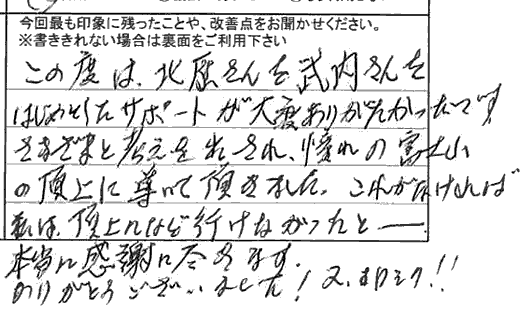 今回最も印象に残ったことや、改善点をお聞かせください。
※書ききれない場合は裏面をご利用下さい
この度は、北原さんを武内さんを
はじめとしたサポートが大変ありがたかったです
さまざまと考えを 、憧れの富士山
の頂上に導いて頂きました。これがなければ
私は、頂上になど行けなかったと―
本当に感謝に尽きます。
ありがとうございました! 又、 !!